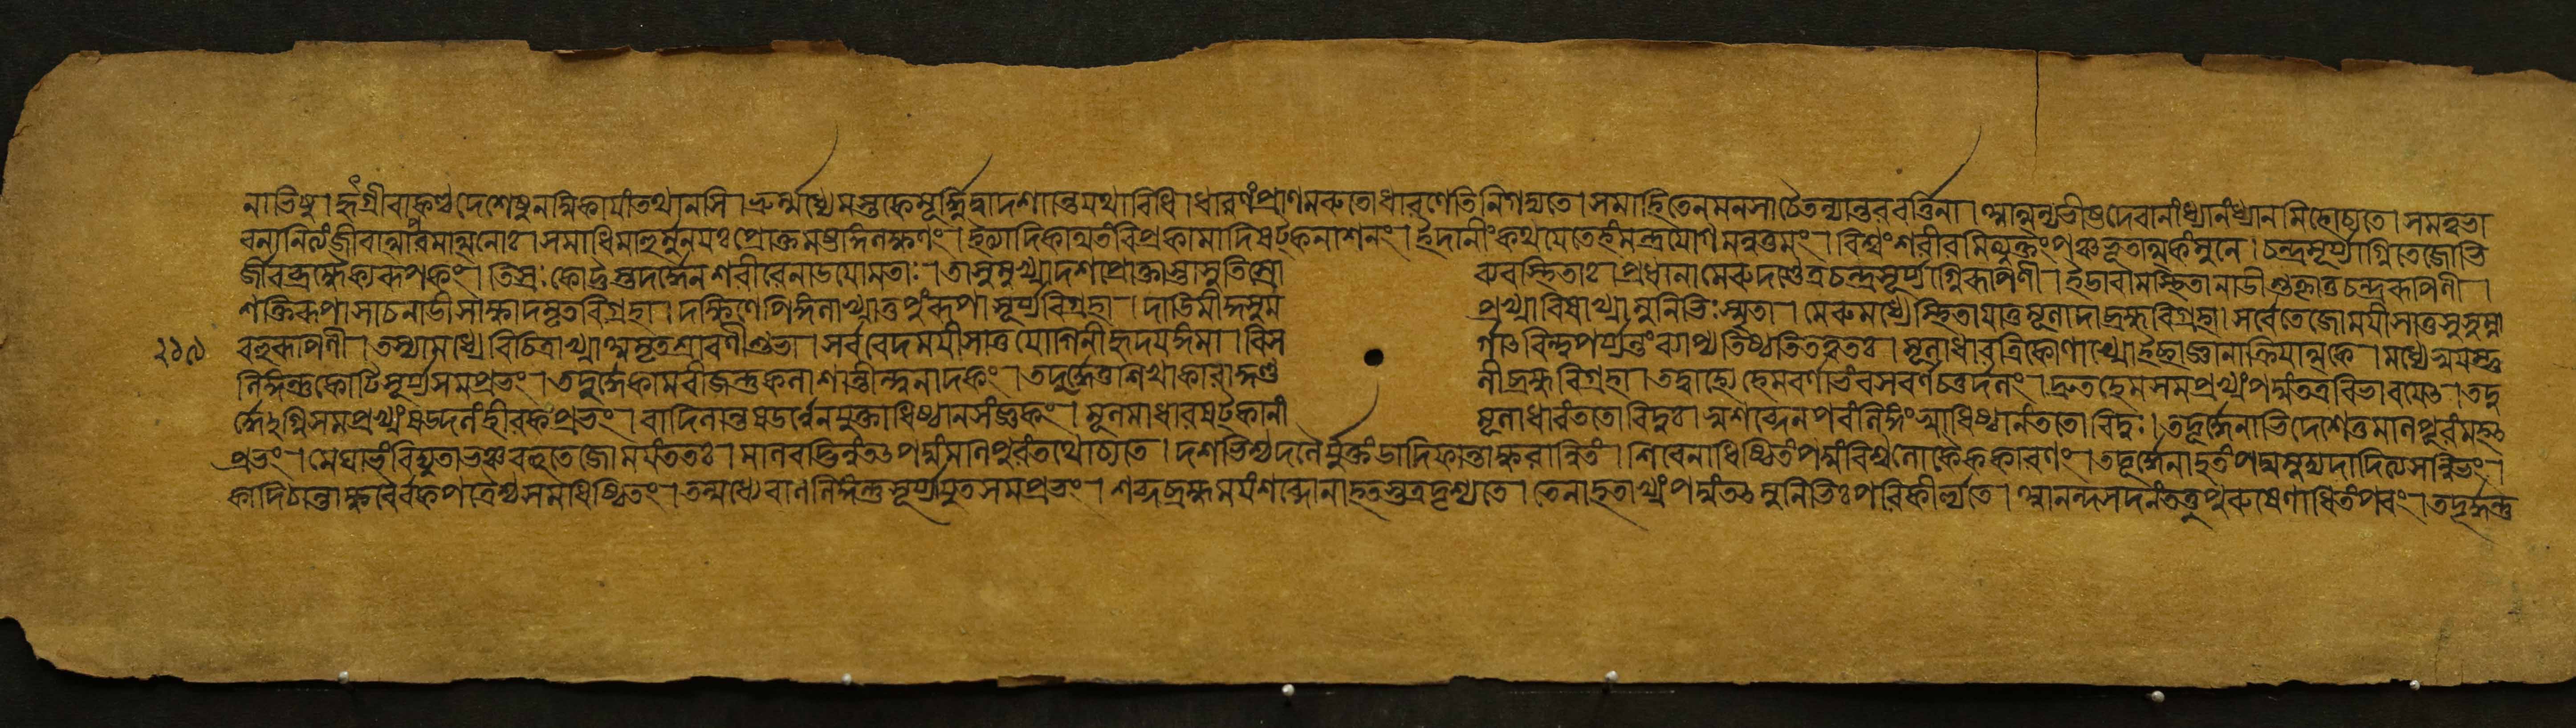 নাভিষু । হৃদ্গ্রীবাকণ্ঠদেশেষুলম্বিকায়াংতথানসি । ভ্রুর্ম্মধ্যেমস্তকেমূর্দ্ধ্নিদ্বাদশান্তেযথাবিধি । ধারণংপ্রাণমরুতোধারণেতিনিগদ্যতে । সমাহিতেনমনসাচৈতন্যান্তরবর্ত্তিনা । আত্মন্যভীষ্টদেবানাংধ্যানংধ্যানমিহোচ্যতে । সমত্বভা
বনানিত্যংজীবাত্মপরমাত্মনোঃ । সমাধিমাহুর্মুনয়ঃপ্রোক্তমষ্টাঙ্গলক্ষণং । কামাদিষট্কনাশনং । ইদানীংকথয়েতেহংমন্ত্রযোগমনুত্তমং । বিশ্বংশরীরমিত্যুক্তংপঞ্চভূতাত্মকংমুনে । চন্দ্রসূর্য্যাগ্নিতেজোভি
র্জীবব্রহ্মৈক্যরূপকং । তিস্রঃকোট্যস্তদর্দ্ধেনশরীরেনাডয়োমতাঃ । তাসুমুখ্যাদশপ্রোক্তাস্তাসুতিস্রো ব্যবস্থিতাঃ । প্রধানামেরুদণ্ডেত্রচন্দ্রসূর্য্যাগ্নিরূপিণী । ইডাবামেস্থিতানাডীশুক্লাতুচন্দ্ররূপিণী ।
শক্তিরূপাসাচনাডীসাক্ষাদমৃতবিগ্রহা । দক্ষিণেপিঙ্গলাখ্যাতুপুংরূপাসূর্য্যবিগ্রহা । দাডিমীকুসুম প্রখ্যাবিষাখ্যামুনিভিঃস্মৃতা । মেরুমধ্যেস্থিতাযাতুমূলাদাব্রহ্মবিগ্রহা । সর্বতেজোময়ীসাতুসুষুম্না
২১৯ বহ্নিরূপিণী । তস্যামধ্যেবিচিত্রাখ্যাঅমৃতশ্রাবণীশুভা । সর্ববেদময়ীসাতুযোগিনীহৃদয়ঙ্গমা । বিস র্গাৎবিন্দুপর্য্যন্তংব্যাপ্যতিষ্ঠতিতত্ত্বতঃ । মূলাধারেত্রিকোণাখ্যেইচ্ছাজ্ঞানাক্রিয়াত্মকে । মধ্যেস্বয়ম্ভু
লিঙ্গন্তুকোটিসূর্য্যসমপ্রভং । তদূর্দ্ধেকামবীজন্তুকলাশান্তীন্দুনাদকং । তদূর্দ্ধেতুশিখাকারাকুণ্ড লীব্রহ্মবিগ্রহা । তদ্বাহ্যেহেমবর্ণাভংবসবর্ণচতুর্দলং । দ্রুতহেমসমপ্রখ্যংপদ্মংতত্রবিভাবয়েৎ । তদূ
র্দ্ধেঽগ্নিসমপ্রখ্যংষড্দলংহীরকপ্রভং । বাদিলান্তষডর্ণেনযুক্তাধিষ্ঠানসংজ্ঞকং । মূলমাধারষট্কানাং মূলাধারংততোবিদুঃ । স্বশব্দেনপরংলিঙ্গংস্বাধিষ্ঠানংততোবিদুঃ । তদূর্দ্ধেনাভিদেশেতুমণিপূরংমহৎ
প্রভং । মেঘাভংবিদ্যুতাভঞ্চবহুতেজোময়ংততঃ । মণিবদ্ভিন্নংতৎপদ্মংমণিপূরংতথোচ্যতে । দশভিশ্চদলৈর্যুক্তংডাদিফান্তাক্ষরান্বিতং । শিবেনাধিষ্ঠিতংপদ্মংবিশ্বলোকৈককারণং । তদূর্দ্ধেনাহতংপদ্মমুদ্যদাদিত্যসন্নিভং ।
কাদিঠান্তাক্ষরৈরর্কপত্রৈশ্চসমধিষ্ঠিতং । তন্মধ্যেবাণলিঙ্গন্তুসূর্য্যাযুতসমপ্রভং । শব্দব্রহ্মময়ংশব্দোনাহতস্তত্রদৃশ্যতে । তেনাহতাখ্যংপদ্মংতৎমুনিভিঃপরিকীর্ত্ত্যতে । আনন্দসদনংতত্তুপুরুষেণাধিতংপরং । তদূর্দ্ধন্তু